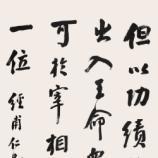 但以功績
出入王命眾
可於宰相
一位 經甫仁